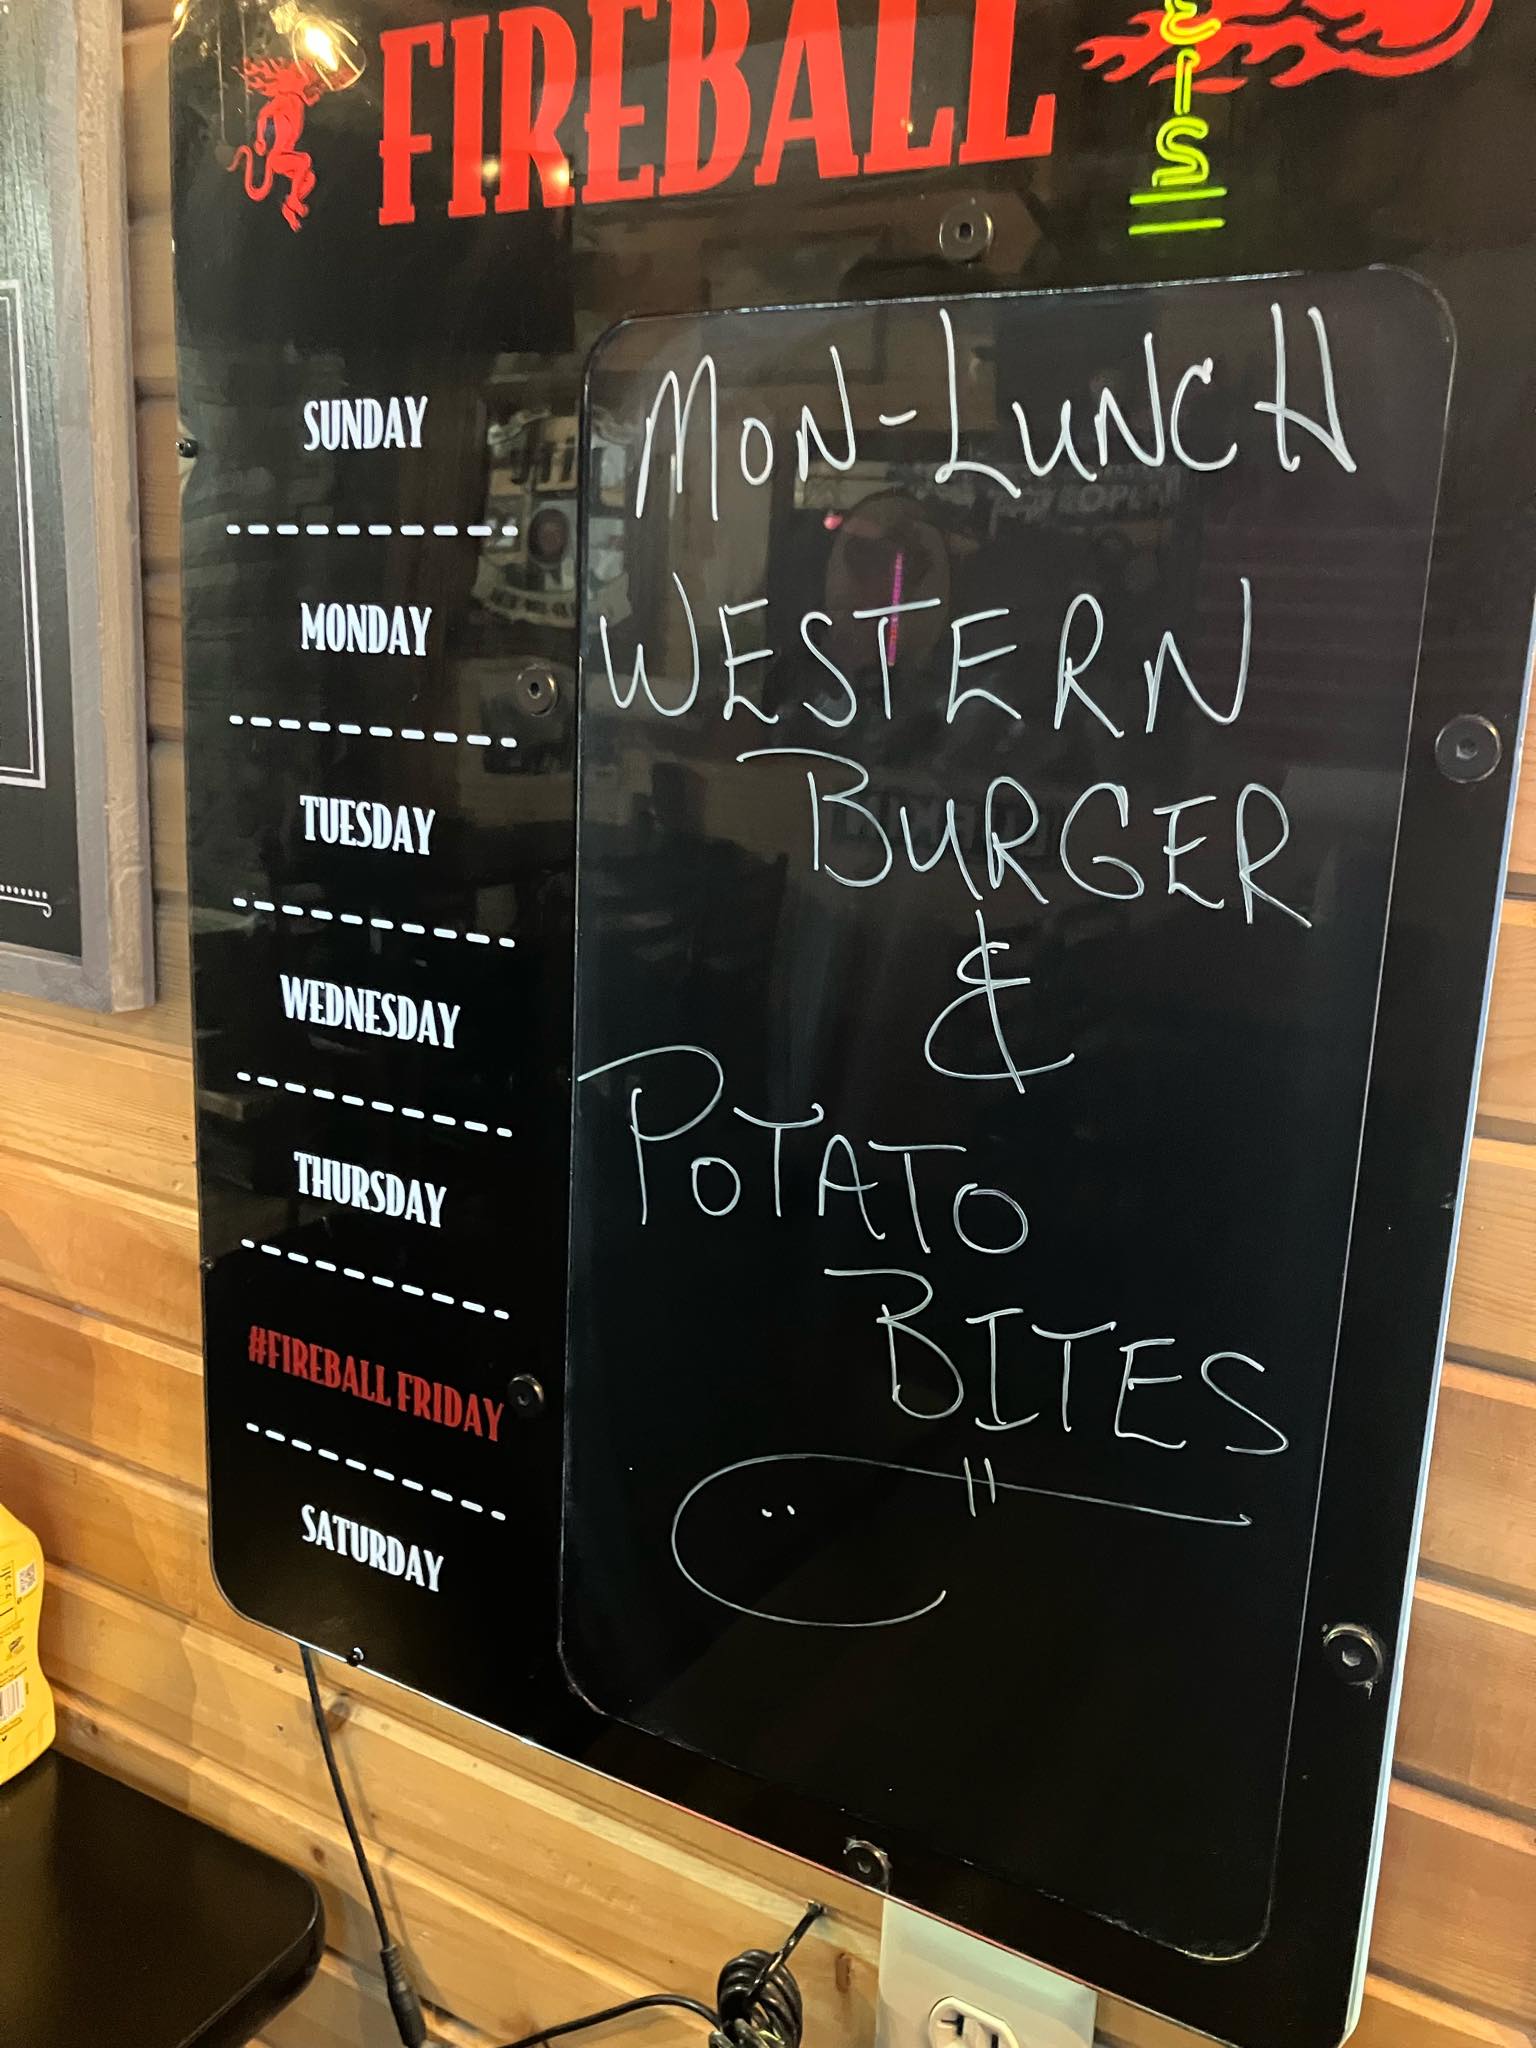 FIREBALL
EIS
SUNDAY
MONDAY
TUESDAY
WEDNESDAY
THURSDAY
#FIREBALL FRIDAY
SATURDAY
MON-LUNCH
WESTERN
BURGER
&
POTATO
BITES